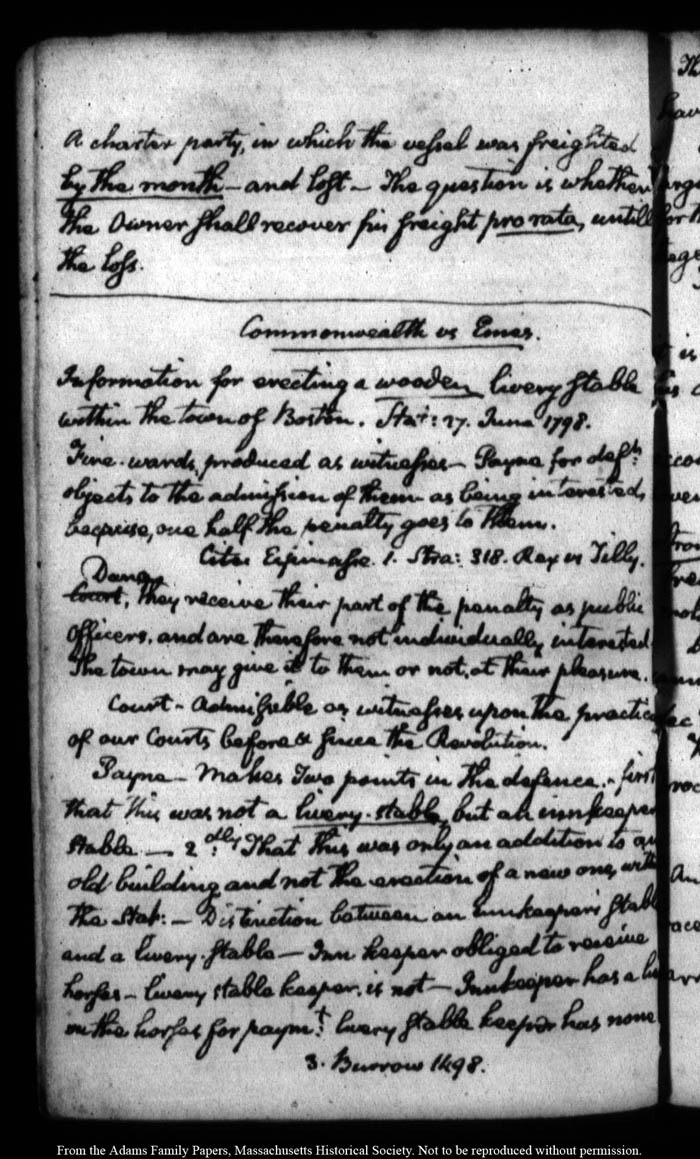 A charter party, in which the vessel was freighted
by the month – and lost – The question is whether
the Owner shall recover his freight pro rata, untill
the loss.
Commonwealth vs Emes.
Information for erecting a wooden livery stable
within the town of Boston. Stat: 27. June 1798.
Fire-wards, produced as witnesses – Payne for defts:
objects to the admission of them as being interested,
because, one half the penalty goes to them.
Cites Espinasse. 1. Stra: 318. Rex vs Tilly.
Dana
Court, they receive their part of the penalty as public
officers, and are therefore not individually interested
The town may give it to them or not, at their pleasure.
Court – Admissible as witnesses upon the practice
of our Courts before & since the Revolution.
Payne – Makes Two points in the defence. – first
that this was not a livery-stable, but an innkeeper
stable – 2dly: That this was only an addition to an
old building and not the erection of a new one, with
the Stat: – Distinction between an Innkeeper's stable
and a livery-stable – Inn keeper obliged to receive
horses – livery stable keeper, is not – Innkeeper has a
on the horses for paymt: livery stable keeper has none
3. Burrow 1498.
From the Adams Family Papers, Massachusetts Historical Society. Not to be reproduced without permission.